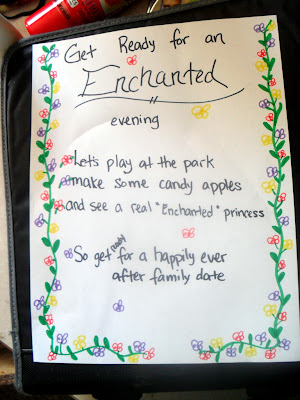 Get Ready for an
Enchanted
evening
Let's play at the park
make some candy apples
and see a real "Enchanted" princess
So get ready for a happily ever
after family date